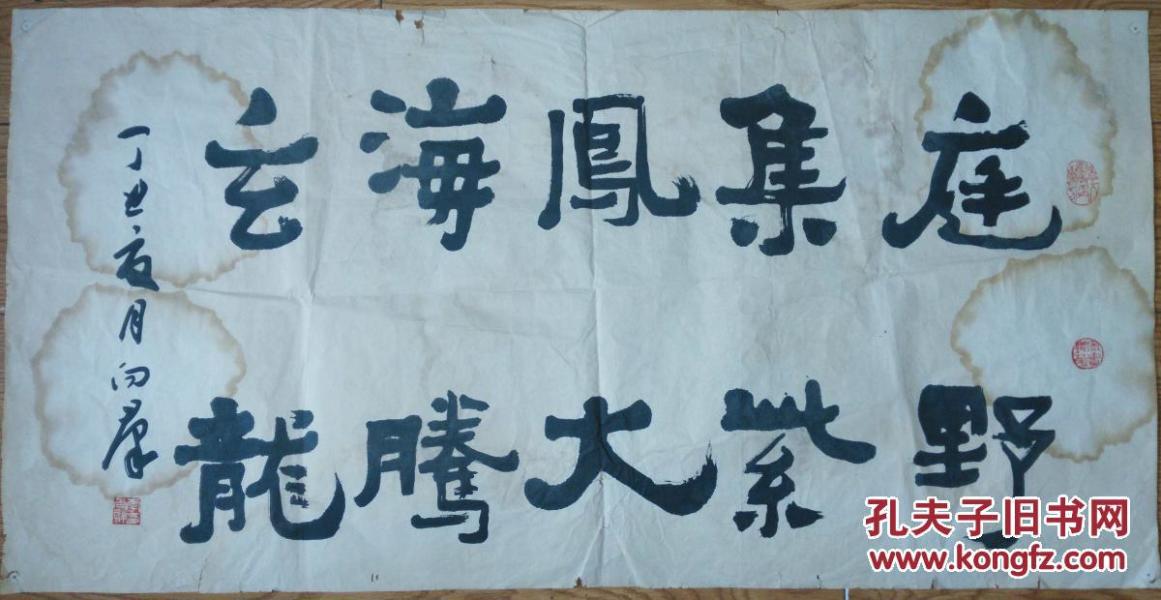 庭野
集紫
鳳大
海騰
玄龍
丁丑夏月向羣
孔夫子旧书网
www.kongfz.com